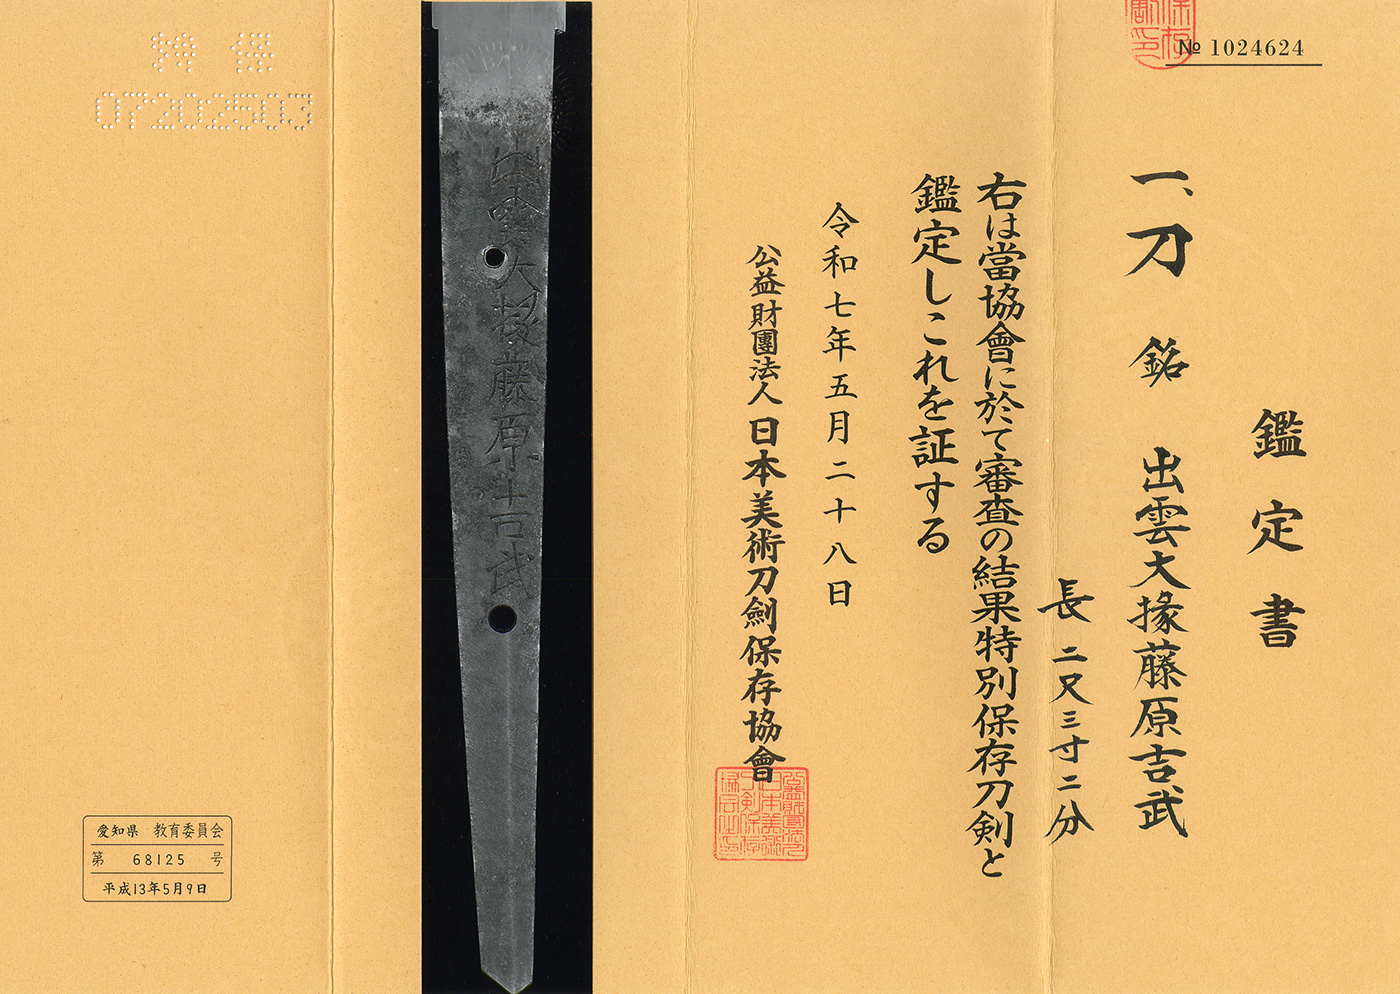 № 1024624
鑑定書
一、刀 銘 出雲大掾藤原吉武
長 二尺三寸二分
右は當協會に於て審査の結果特別保存刀剣と
鑑定しこれを証する
令和七年五月二十八日
公益財團法人 日本美術刀劍保存協會
出雲大掾藤原吉武
特保
07202503
愛知県 教育委員会
第 68125 号
平成13年5月9日